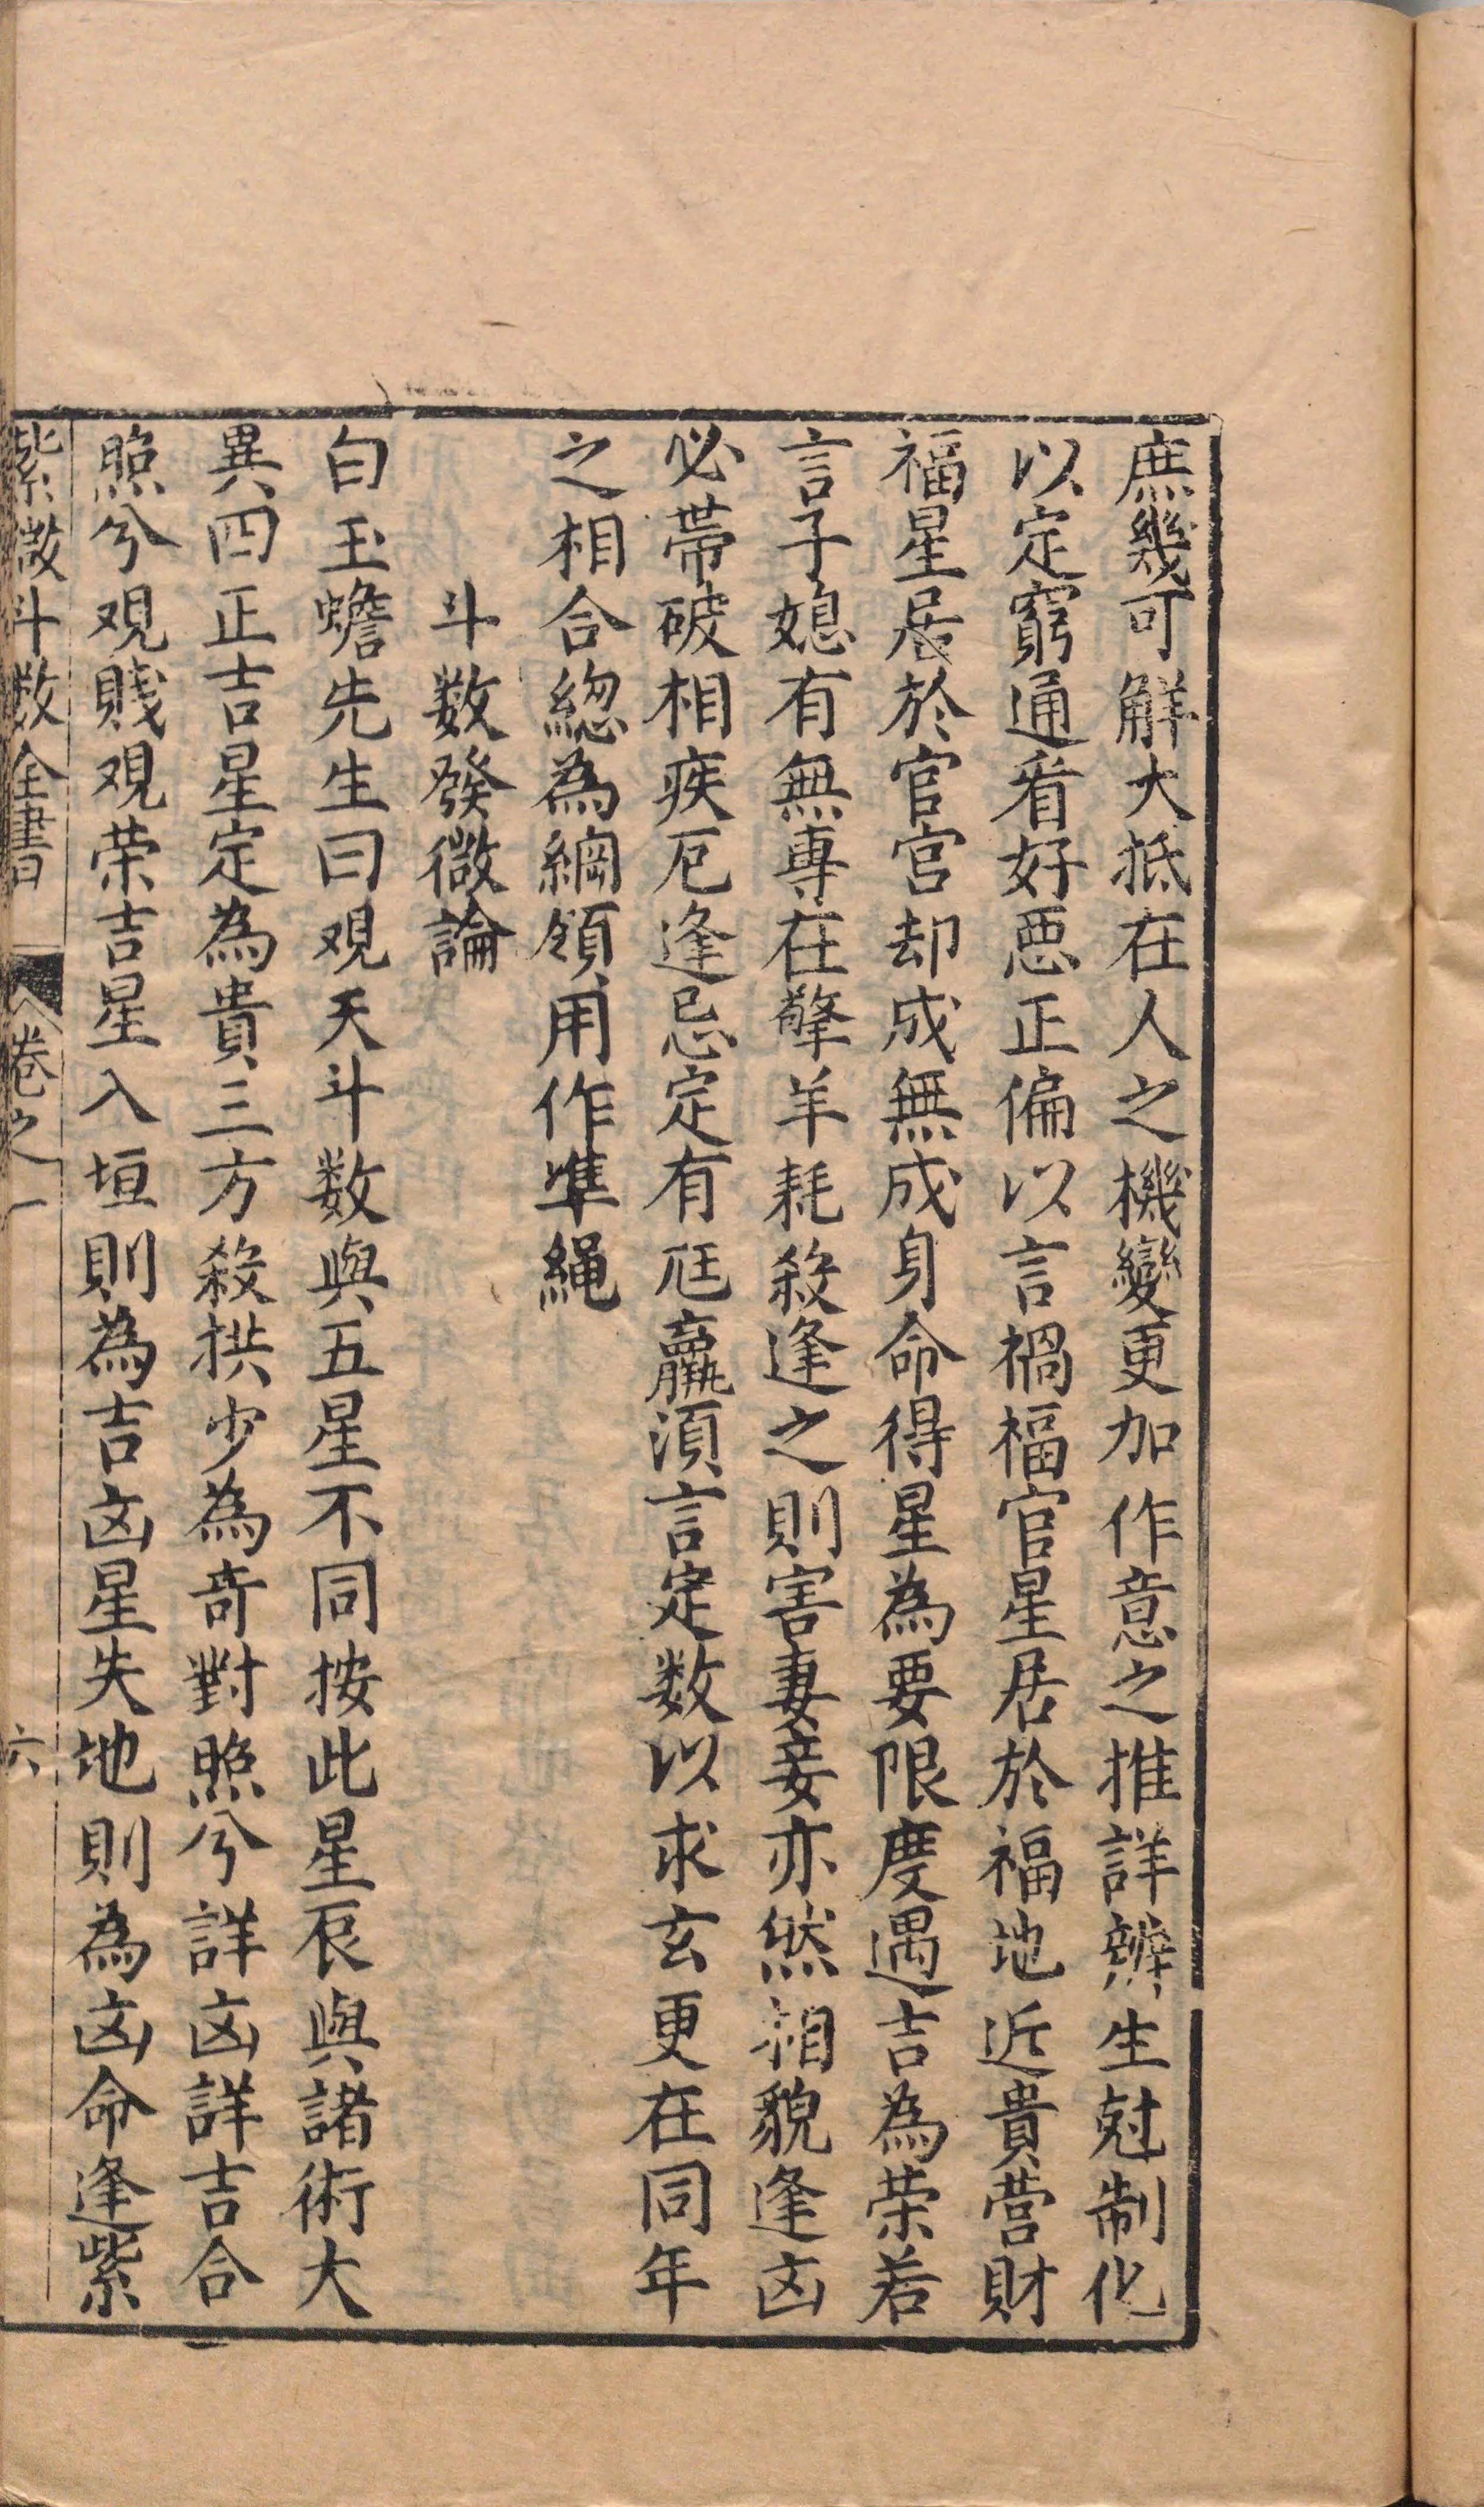 庶幾可觧大抵在人之機變更加作意之推詳辨生尅制化
以定窮通看好悪正偏以言禍福官星居於福地近貴营財
福星居於官宫却成無成身命得星為要限度遇吉為荣若
言子媳有無專在擎羊耗殺逢之則害妻妾亦然相貌逢凶
必帯破相疾厄逢忌定有尫羸湏言定数以求玄更在同年
之相合緫為綱領用作凖繩
斗数發微論
白玉蟾先生曰观天斗数與五星不同按此星辰與諸術大
異四正吉星定為貴三方殺拱少為奇對照兮詳凶詳吉合
照兮观賎观荣吉星入垣則為吉凶星失地則為凶命逢紫
紫微斗数全書 卷之一 六